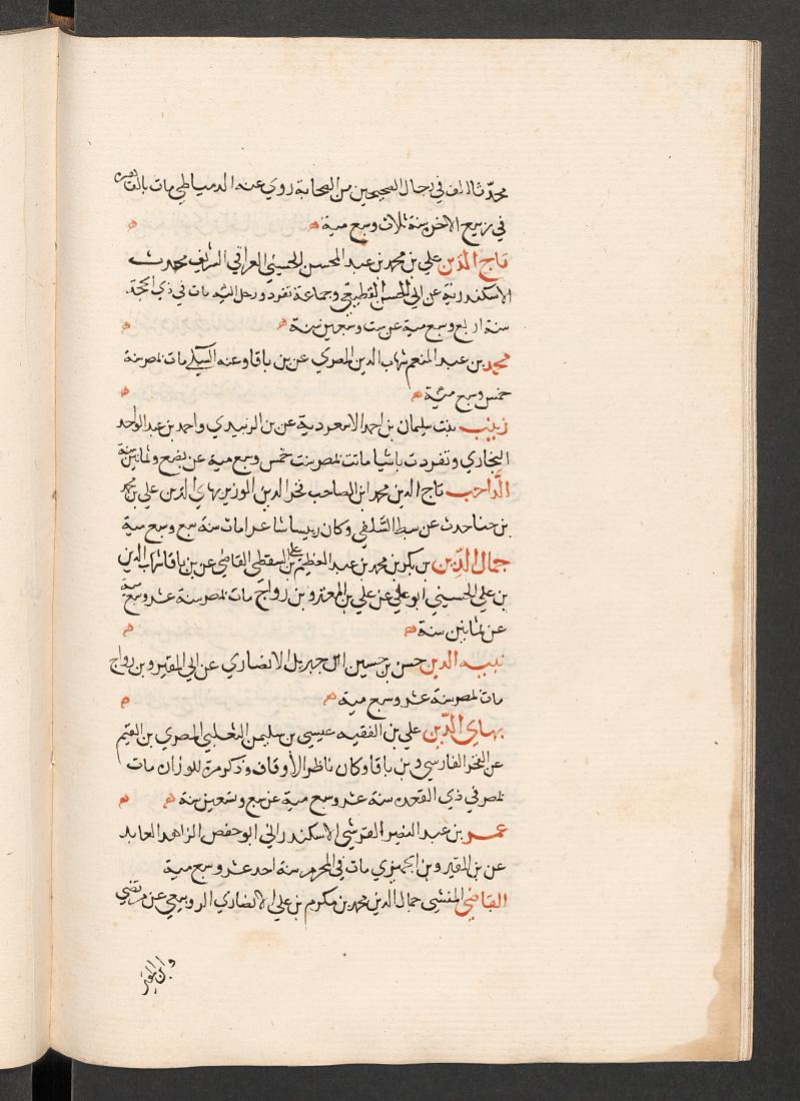 محدث الف في رجال الصحيحين من الصحابة روي عنه الدمياطي مات بالقاهره
في ربيع الاخر سنة ثلاث وسبع مية
تاج الدين علي بن محمد بن عبد المحسن الحسيني العراقي الشريف محدث
الاسكندرية عن ابي الحسن القطيعي وجماعة تفرد ورحل اليه مات في ذي الحجة
سنة اربع وسبع مية عن ست وسبعين سنة
محمد بن عبد المنعم شهاب الدين المصري عن بن باقا وعنه السبكي مات بمصر سنة
خمس وسبع مئية
زينب بنت سليمان بن احمد الاسعردية عن بن الزبيدي واحمد بن عبد الواحد
البخاري وتفردت باشيا ماتت بمصر سنت خمس وسبع مية عن بضع وثمانين سنة
الداحب تاج الدين محمد ابن الصاحب فخر الدين الوزير بهاي الدين علي بن محمد
بن حنا حدث عن سبط السلفي وكان رييسا شاعرا مات سنة سبع وسبع مية
جمال الدين بن بكر بن محمد بن عبد العظيم بن علي السقطي القاضي عن بن باقا شهاب الدين
بن علي الحسيني ابو علي عن علي بن المعتز وبن رواج مات بمصر سنة عشر وسبع مية
عن ثمانين سنة
نبيه الدين حسن بن حسين ابن جبريل الانصاري عن ابي المقير وبن رواج
مات بمصر سنة عشر وسبع مية
بهاي الدين علي بن الفقيه عيسي بن سليمن الثعلبي المصري بن القيم
عن الفخر الفارسي وبن باقا وكان ناظر الأوقاف وذكر مرة للوزان مات
بمصر في ذي القعده سنة عشر وسبع مية عن سبع وتسعين سنة
عمر بن عبد النصير القرشي الاسكندراني ابو حفص الزاهد العابد
عن بن المقير وبن الجميزي مات في المحرم سنة احد عشر وسبع مية
القاضي المنشي جمال الدين محمد بن مكرم بن علي الانصاري الرويفعي عن مرتضي
وابن المقير